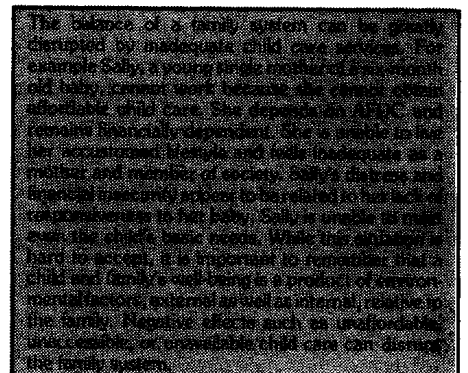 The balance of a family system can be greatly
disrupted by inadequate child care services. For
example Sally, a young single mother of a six-month
old baby, cannot work because she cannot obtain
affordable child care. She depends on AFDC and
remains financially dependent. She is unable to live
her accustomed lifestyle and feels inadequate as a
mother and member of society. Sally's distress and
financial insecurity appear to be related to her lack of
responsiveness to her baby. Sally is unable to meet
even the child's basic needs. While this situation is
hard to accept, it is important to remember that a
child and family's well-being is a product of environ-
mental factors, external as well as internal, relative to
the family. Negative effects such as unaffordable,
unaccessible, or unavailable child care can disrupt
the family system.